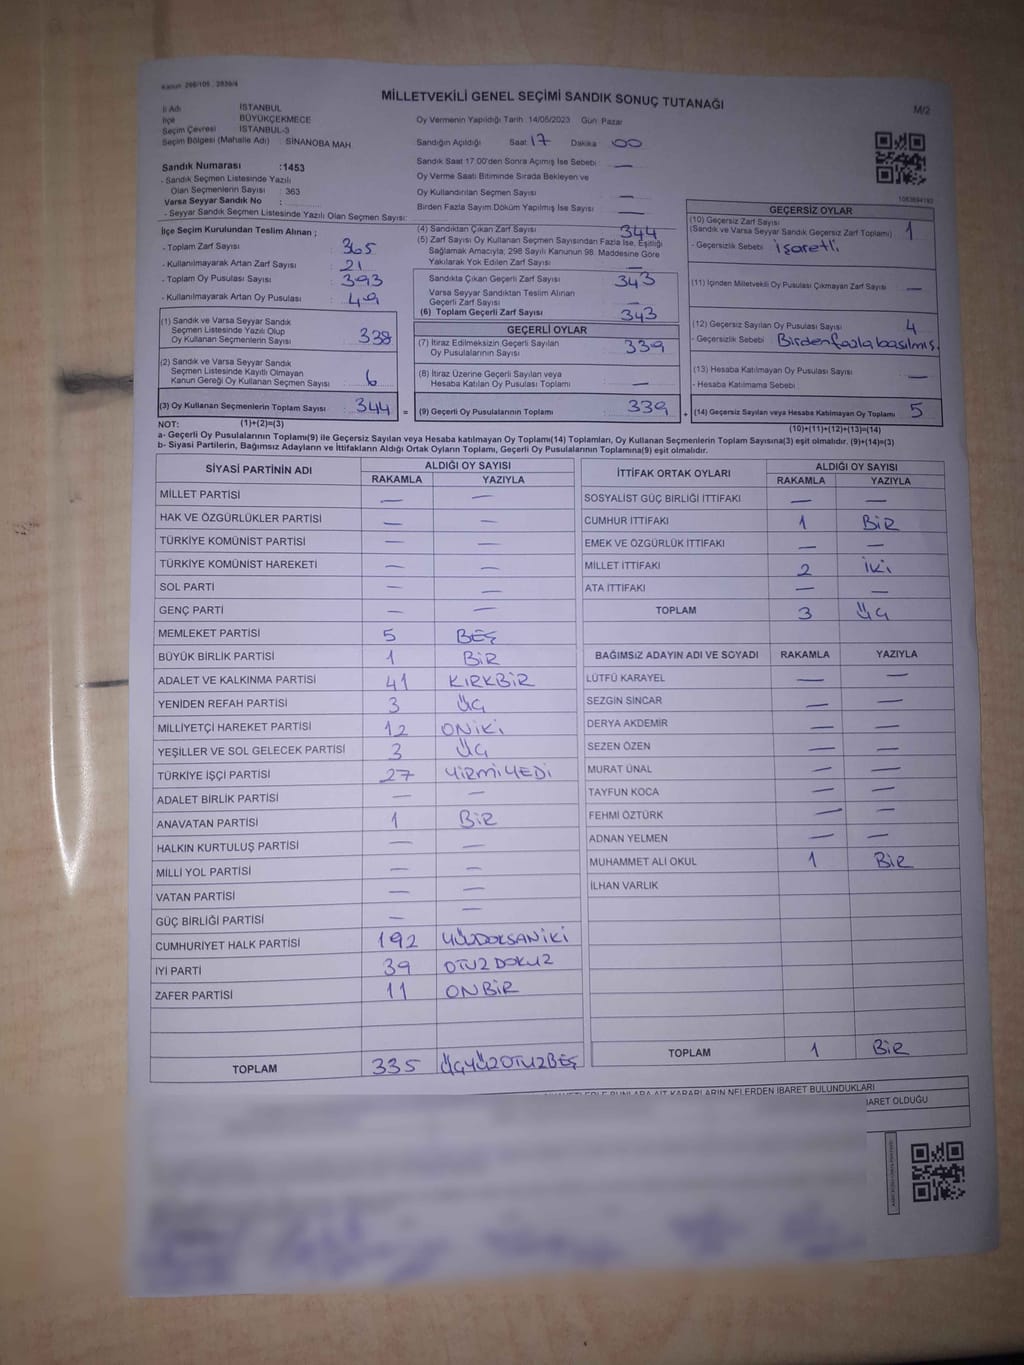 Kanun: 298/105 , 2839/4
MİLLETVEKİLİ GENEL SEÇİMİ SANDIK SONUÇ TUTANAĞI
M/2
İl Adı İSTANBUL
İlçe BÜYÜKÇEKMECE
Seçim Çevresi İSTANBUL-3
Seçim Bölgesi (Mahalle Adı) SİNANOBA MAH.
Oy Vermenin Yapıldığı Tarih :14/05/2023 Gün: Pazar
Sandığın Açıldığı Saat: 17 Dakika 00
Sandık Saat 17:00'den Sonra Açımış İse Sebebi : —
Oy Verme Saati Bitiminde Sırada Bekleyen ve
Oy Kullandırılan Seçmen Sayısı : —
Birden Fazla Sayım Döküm Yapılmış İse Sayısı : —
Sandık Numarası :1453
- Sandık Seçmen Listesinde Yazılı
Olan Seçmenlerin Sayısı : 363
Varsa Seyyar Sandık No :
- Seyyar Sandık Seçmen Listesinde Yazılı Olan Seçmen Sayısı:
İlçe Seçim Kurulundan Teslim Alınan ;
- Toplam Zarf Sayısı : 365
- Kullanılmayarak Artan Zarf Sayısı : 21
- Toplam Oy Pusulası Sayısı : 393
- Kullanılmayarak Artan Oy Pusulası : 49
(1) Sandık ve Varsa Seyyar Sandık
Seçmen Listesinde Yazılı Olup
Oy Kullanan Seçmenlerin Sayısı : 338
(2) Sandık ve Varsa Seyyar Sandık
Seçmen Listesinde Kayıtlı Olmayan
Kanun Gereği Oy Kullanan Seçmen Sayısı : 6
(3) Oy Kullanan Seçmenlerin Toplam Sayısı : 344 =
(4) Sandıktan Çıkan Zarf Sayısı : 344
(5) Zarf Sayısı Oy Kullanan Seçmen Sayısından Fazla İse, Eşitliği
Sağlamak Amacıyla, 298 Sayılı Kanunun 98. Maddesine Göre
Yakılarak Yok Edilen Zarf Sayısı : —
Sandıkta Çıkan Geçerli Zarf Sayısı : 343
Varsa Seyyar Sandıktan Teslim Alınan
Geçerli Zarf Sayısı : —
(6) Toplam Geçerli Zarf Sayısı : 343
GEÇERLİ OYLAR
(7) İtiraz Edilmeksizin Geçerli Sayılan
Oy Pusulalarının Sayısı : 339
(8) İtiraz Üzerine Geçerli Sayılan veya
Hesaba Katılan Oy Pusulası Toplamı : —
(9) Geçerli Oy Pusulalarının Toplamı : 339 +
GEÇERSİZ OYLAR
(10) Geçersiz Zarf Sayısı
(Sandık ve Varsa Seyyar Sandık Geçersiz Zarf Toplamı) : 1
- Geçersizlik Sebebi : işaretli
(11) İçinden Milletvekili Oy Pusulası Çıkmayan Zarf Sayısı : —
(12) Geçersiz Sayılan Oy Pusulası Sayısı : 4
- Geçersizlik Sebebi : Birden fazla basılmış.
(13) Hesaba Katılmayan Oy Pusulası Sayısı : —
- Hesaba Katılmama Sebebi :
(14) Geçersiz Sayılan veya Hesaba Katılmayan Oy Toplamı : 5
NOT: (1)+(2)=(3)
(10)+(11)+(12)+(13)=(14)
a- Geçerli Oy Pusulalarının Toplamı(9) ile Geçersiz Sayılan veya Hesaba katılmayan Oy Toplamı(14) Toplamları, Oy Kullanan Seçmenlerin Toplam Sayısına(3) eşit olmalıdır. (9)+(14)=(3)
b- Siyasi Partilerin, Bağımsız Adayların ve İttifakların Aldığı Ortak Oyların Toplamı, Geçerli Oy Pusulalarının Toplamına(9) eşit olmalıdır.
SİYASİ PARTİNİN ADI ALDIĞI OY SAYISI
RAKAMLA YAZIYLA
MİLLET PARTİSİ — —
HAK VE ÖZGÜRLÜKLER PARTİSİ — —
TÜRKİYE KOMÜNİST PARTİSİ — —
TÜRKİYE KOMÜNİST HAREKETİ — —
SOL PARTİ — —
GENÇ PARTİ — —
MEMLEKET PARTİSİ 5 BEŞ
BÜYÜK BİRLİK PARTİSİ 1 BİR
ADALET VE KALKINMA PARTİSİ 41 KIRKBİR
YENİDEN REFAH PARTİSİ 3 ÜÇ
MİLLİYETÇİ HAREKET PARTİSİ 12 ONİKİ
YEŞİLLER VE SOL GELECEK PARTİSİ 3 ÜÇ
TÜRKİYE İŞÇİ PARTİSİ 27 YİRMİYEDİ
ADALET BİRLİK PARTİSİ — —
ANAVATAN PARTİSİ 1 BİR
HALKIN KURTULUŞ PARTİSİ — —
MİLLİ YOL PARTİSİ — —
VATAN PARTİSİ — —
GÜÇ BİRLİĞİ PARTİSİ — —
CUMHURİYET HALK PARTİSİ 192 YÜZDOKSANİKİ
İYİ PARTİ 39 OTUZDOKUZ
ZAFER PARTİSİ 11 ONBİR
TOPLAM 335 ÜÇYÜZOTUZBEŞ
İTTİFAK ORTAK OYLARI ALDIĞI OY SAYISI
RAKAMLA YAZIYLA
SOSYALİST GÜÇ BİRLİĞİ İTTİFAKI — —
CUMHUR İTTİFAKI 1 BİR
EMEK VE ÖZGÜRLÜK İTTİFAKI — —
MİLLET İTTİFAKI 2 İKİ
ATA İTTİFAKI — —
TOPLAM 3 ÜÇ
BAĞIMSIZ ADAYIN ADI VE SOYADI RAKAMLA YAZIYLA
LÜTFÜ KARAYEL — —
SEZGİN SİNCAR — —
DERYA AKDEMİR — —
SEZEN ÖZEN — —
MURAT ÜNAL — —
TAYFUN KOCA — —
FEHMİ ÖZTÜRK — —
ADNAN YELMEN — —
MUHAMMET ALİ OKUL 1 BİR
İLHAN VARLIK
TOPLAM 1 BİR
BUNLARA AİT KARARLARIN NELERDEN İBARET BULUNDUKLARI
İBARET OLDUĞU